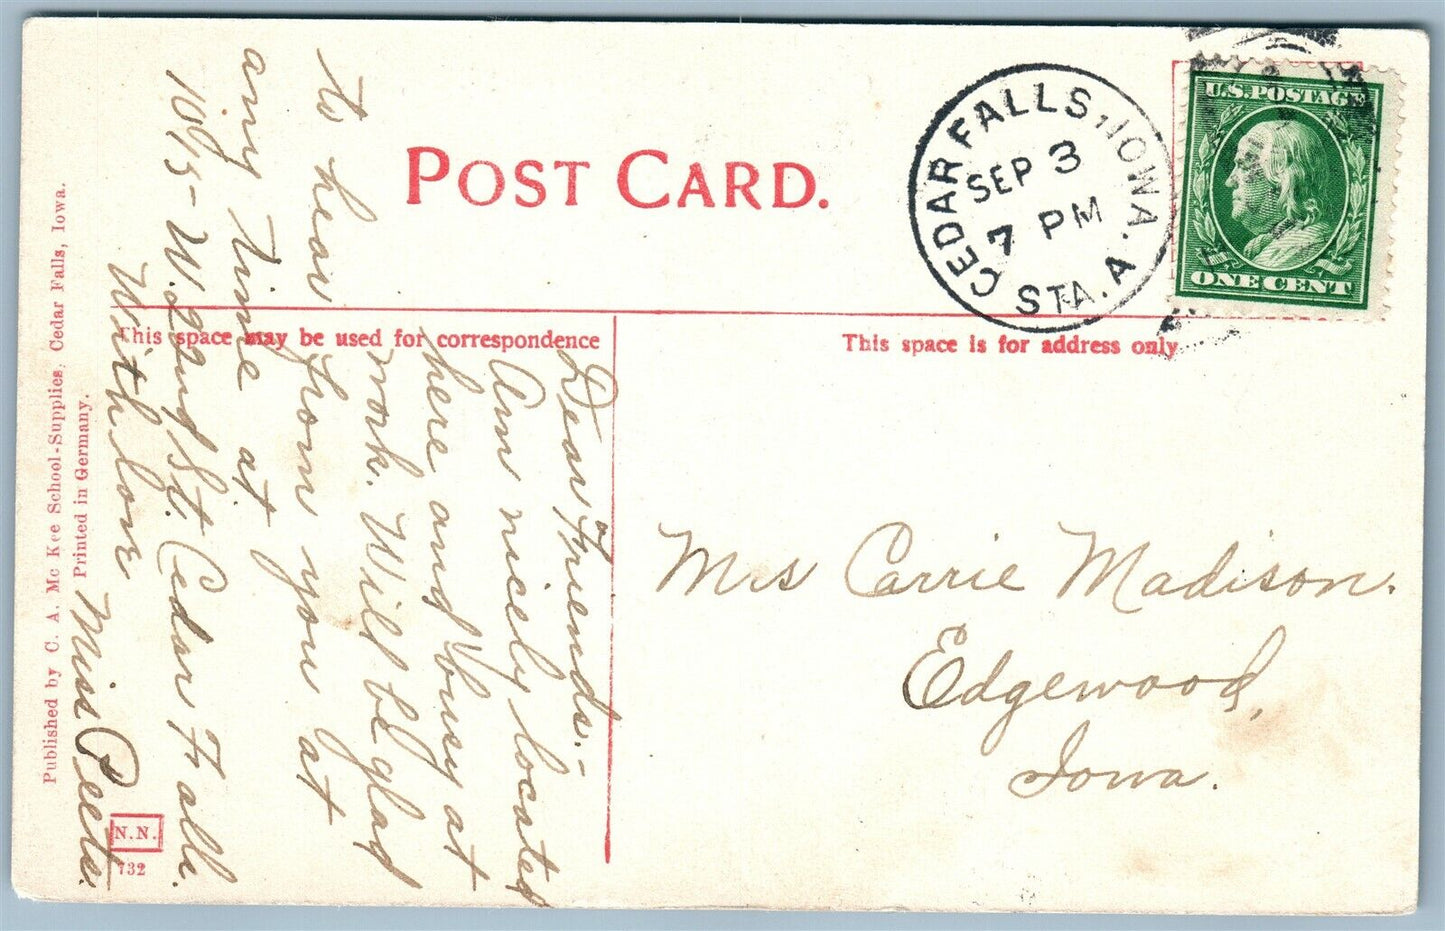 POST CARD.
CEDAR FALLS, IOWA.
SEP 3
7 PM
STA. A
U.S. POSTAGE
ONE CENT
This space may be used for correspondence
This space is for address only
Dear Friends:-
Am nicely located
here and busy at
work. Will be glad
to hear from you at
any time at
1015- W. 22nd St. Cedar Falls.
With love
Miss Peets.
Mrs Carrie Madison.
Edgewood,
Iowa.
Published by C. A. Mc Kee School-Supplies, Cedar Falls, Iowa.
Printed in Germany.
N.N.
732